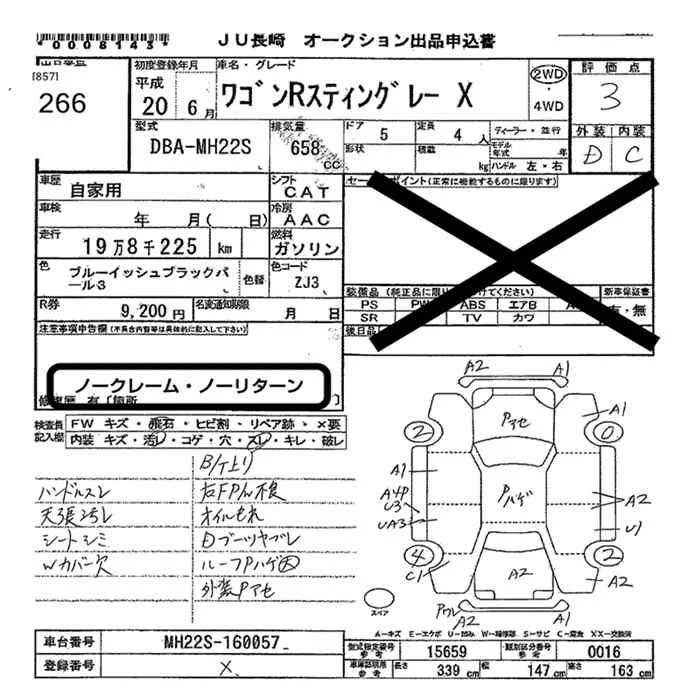 *0008143*
JU長崎 オークション出品申込書
[857]
266
初度登録年月
平成
20 6月
車名・グレード
ワゴンRスティングレー X
2WD
・
4WD
評価点
3
外装 内装
D C
型式
DBA-MH22S
排気量
658 CC
ドア 5
形状
定員 4 人
積載 kg
ディーラー・並行
モデル年式 年
ハンドル 左・右
車歴
自家用
シフト
CAT
車検
年 月( 日)
冷房
AAC
走行
19万8千225 km
燃料
ガソリン
色
ブルーイッシュブラックパール3
色替
色コード
ZJ3
R券
9,200円
名変通知期限
月 日
セールスポイント(正常に機能するものに限ります)
装備品 (純正品に限り
けてください)
新車保証書
PS PW ABS エアB
SR TV カワ
有・無
後日品
注意事項申告欄(不具合内容等は具体的に記入して下さい)
ノークレーム・ノーリターン
修復歴 有〔箇所 〕
検査員記入欄
FW キズ・飛石・ヒビ割・リペア跡・X要
内装 キズ・汚レ・コゲ・穴・スレ・キレ・破レ
B/T上り
ハンドルスレ
右FPハん不良
天張ヨゴレ
オイルもれ
シートシミ
Dブーツヤブレ
Wカバー欠
ルーフPハゲ大
外装Pアセ
A2 A1
Pアセ
A1
2 0
A1
Pハゲ
A4P
U3
A2
UA3
U1
4 2
C1
A2
A2
Pワレ A1
スペア
A-キズ E-エクボ U-凹み W-補修跡 S-サビ C-腐食 XX-交換済
車台番号
MH22S-160057
登録番号
X
型式指定番号
参考
15659
類別区分番号
参考
0016
車庫証明用
参考
長さ 339 cm 幅 147 cm 高さ 163 cm